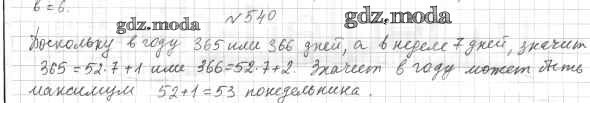 в = 6.
№ 540
gdz.moda gdz.moda
Поскольку в году 365 или 366 дней, а в неделе 7 дней, значит
365 = 52·7+1 или 366=52·7+2. Значит в году может быть
максимум 52+1=53 понедельника.